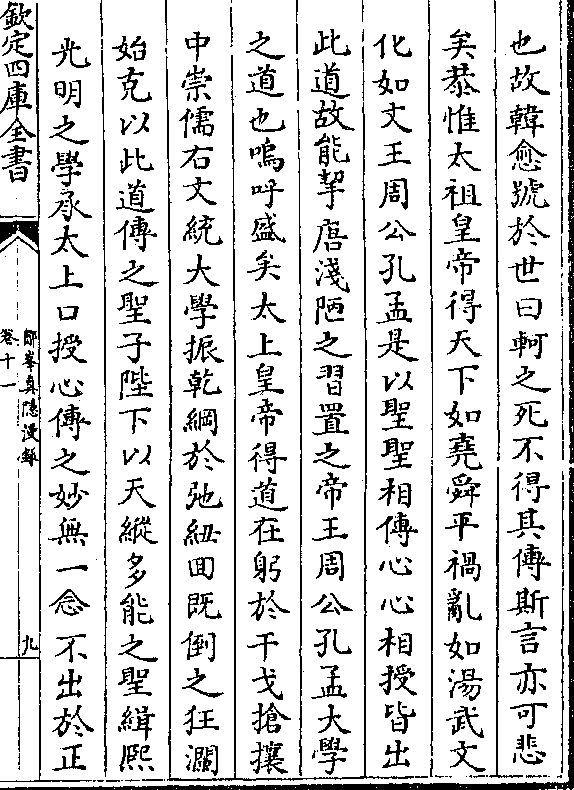 也故韓愈號於世曰軻之死不得其傳斯言亦可悲
矣恭惟太祖皇帝得天下如堯舜平禍亂如湯武文
化如文王周公孔孟是以聖聖相傳心心相授皆出
此道故能挈唐淺陋之習置之帝王周公孔孟大學
之道也嗚呼盛矣太上皇帝得道在躬於干戈搶攘
中崇儒右文統大學振乾綱於弛紐回既倒之狂瀾
始克以此道傳之聖子陛下以天縱多能之聖緝熙
光明之學承太上口授心傳之妙無一念不出於正
欽定四庫全書
鄮峯真隱漫錄
卷十一
九